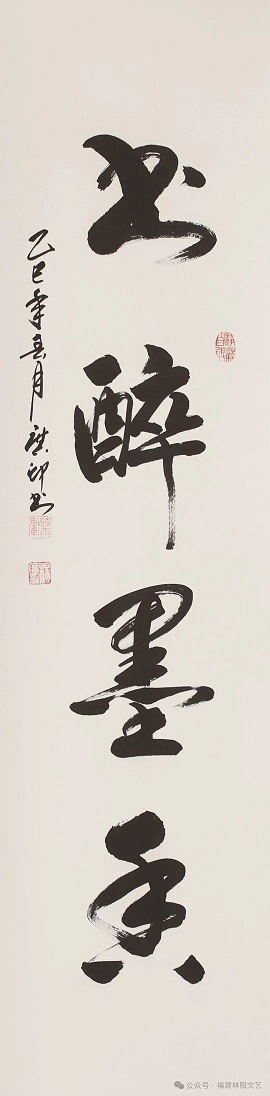 书醉墨香
乙巳年春月 庆卿书
公众号·福建林阳文艺